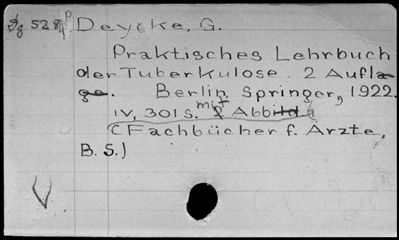 Dg 528 p Deycke, G.
Praktisches Lehrbuch
der Tuberkulose. 2 Aufla-
ge. Berlin, Springer, 1922.
IV, 301 S. mit 2 Abbild.
(Fachbücher f. Ärzte,
B. 5.)